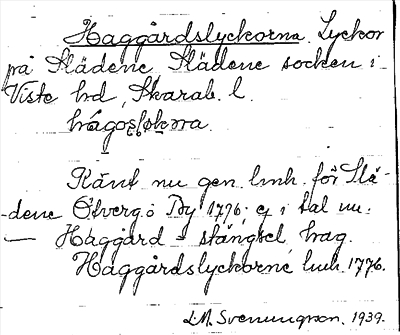 Haggårdslyckorna. Lyckor
på Slädene Slädene socken i
Viste hd, Skarab. l.
Känt nu gen. lmh. för Slä-
-dene Öfvergö By 1776; ej i tal nu.
— Haggård = stängsel hag.
Haggårdslyckorne lmh. 1776.
L.M. Svenungsson. 1939.